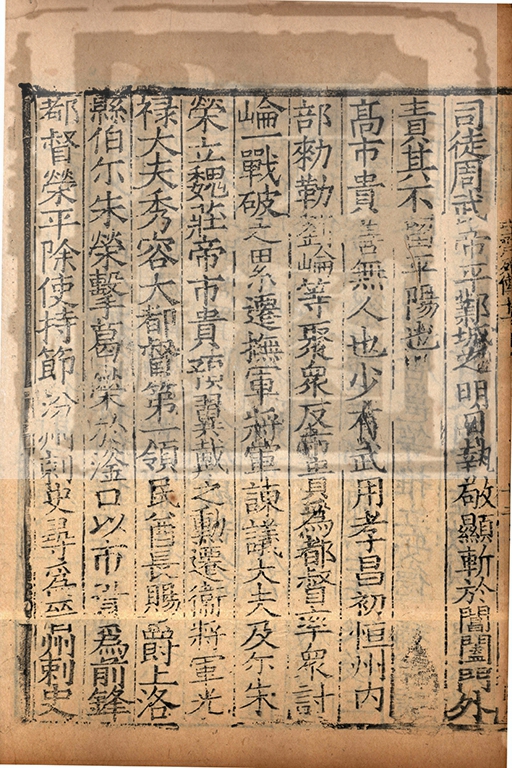 司徒周武帝平鄴城之明月執敬顯斬於閶闔門外
責其不留平陽也
高市貴善無人也少有武用孝昌初恒州內
部勑勒劉崘等聚衆反市貴爲都督率衆討
崘一戰破之累遷撫軍將軍諫議大夫及尒朱
榮立魏莊帝市貴預翼戴之勳遷衞將軍光
祿大夫秀容大都督第一領民酋長賜爵上洛
縣伯尒朱榮擊葛榮於滏口以市貴爲前鋒
都督榮平除使持節汾州刺史尋爲晉州刺史